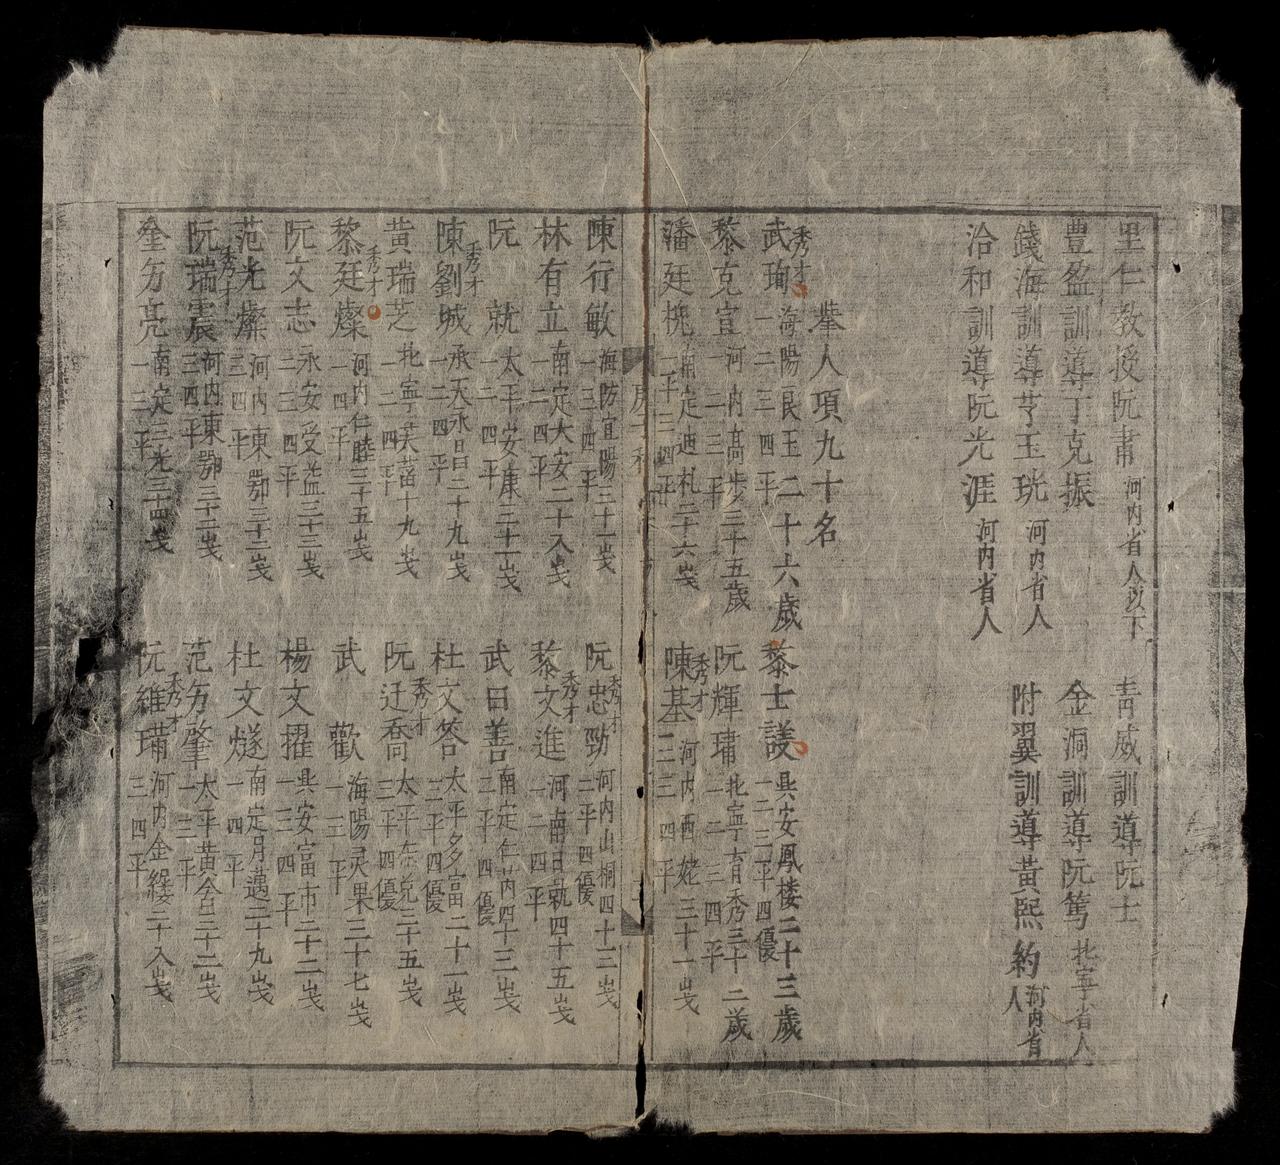 里仁教授阮肅 河内省人以下
青威訓導阮士
豊盈訓導丁克振
金洞訓導阮篤 北寧省人
錢海訓導𦬇玉珖 河内省人
附翼訓導黄熙約 河内省人
洽和訓導阮光涯 河内省人
舉人項九十名
秀才武珣 海陽良玉二十六歲 一二三四平
黎士議 興安鳳楼二十三歲 一二三平四優
黎克宜 河内髙步三十五歲 一二三平
阮輝璛 北寧育秀三十二歲 一二三四平
潘廷槐 南定迪礼二十六歲 一二平三四平
秀才陳基 河内西姥三十一歲 二三四平
陳行敏 海防宜陽三十一歲 一三四平
秀才阮忠勁 河内山桐四十三歲 二平四優
林有立 南定大安二十八歲 一二四平
秀才黎文進 河南日就四十五歲 一二四平
阮就 太平安康三十一歲 一二四平
武曰善 南定仁内四十三歲 二平四優
秀才陳劉城 承天永昌二十九歲 一二四平
杜文答 太平多富二十一歲 二平四優
黄瑞芝 北寧芙蕾十九歲 一二四平
秀才阮迂喬 太平左兑三十五歲 二平四優
秀才黎廷燦 河内仁睦三十五歲 一四平
武歡 海陽灵果二十七歲 一三平
阮文志 永安受益三十三歲 二三四平
楊文擢 興安富市二十二歲 一三四平
范光燦 河内東鄂三十二歲 三四平
杜文燧 南定月邁二十九歲 一四平
秀才阮瑞震 河内東鄂三十二歲 三四平
范方肇 太平黄舍三十二歲 一三平
奎方亮 南定三光三十四歲 一三平
秀才阮維瑃 河内金縷二十八歲 三四平